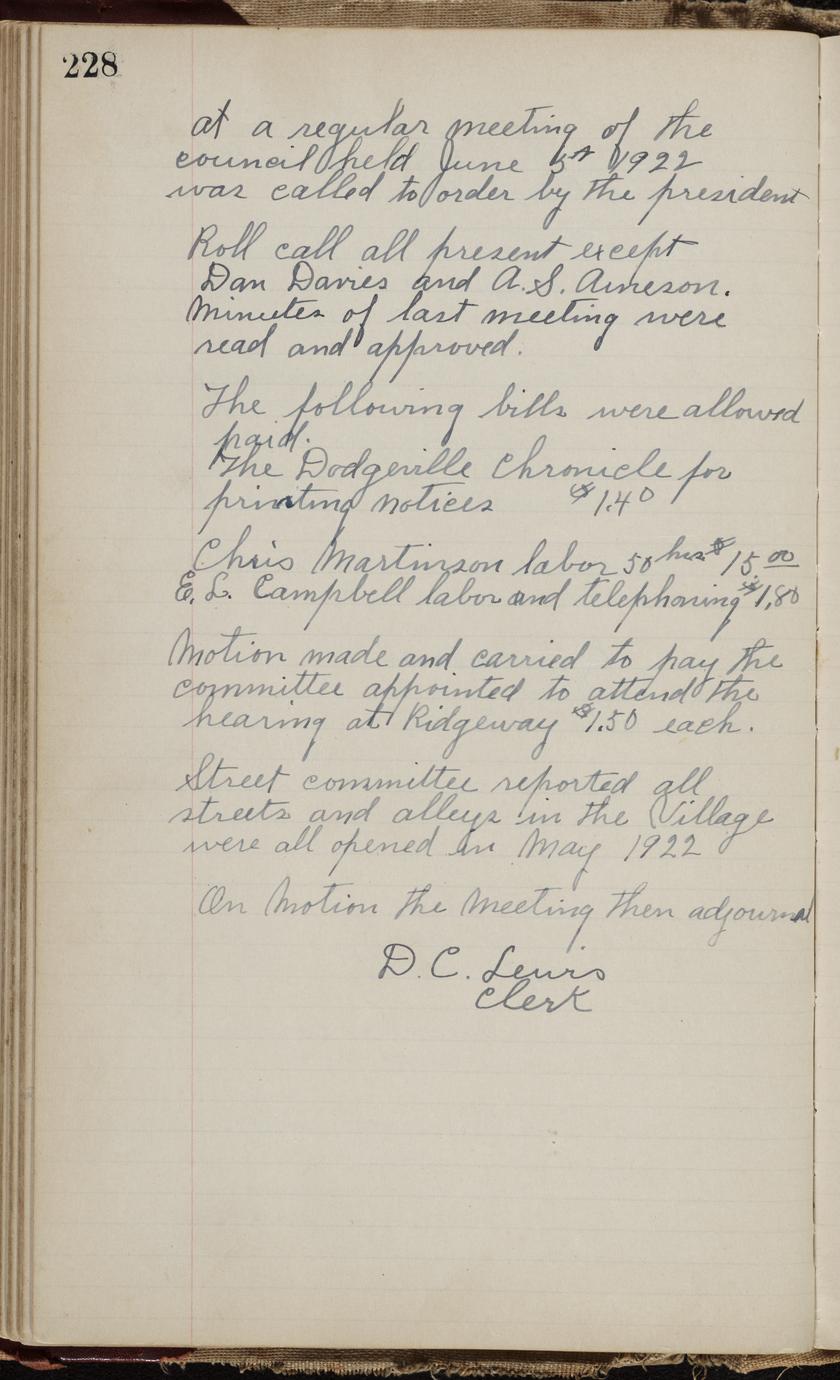 228
at a regular meeting of the
council held June 5st 1922
was called to order by the president
Roll call all present except
Dan Davies and A. S. Arneson.
Minutes of last meeting were
read and approved.
The following bills were allowed
paid.
The Dodgeville Chronicle for
printing notices $1.40
Chris Martinson labor 50 hrs $15 00
E. L. Campbell labor and telephoning $1.80
Motion made and carried to pay the
committee appointed to attend the
hearing at Ridgeway $1.50 each.
Street committee reported all
streets and alleys in the Village
were all opened in May 1922
On Motion the Meeting then adjourned
D. C. Lewis
Clerk